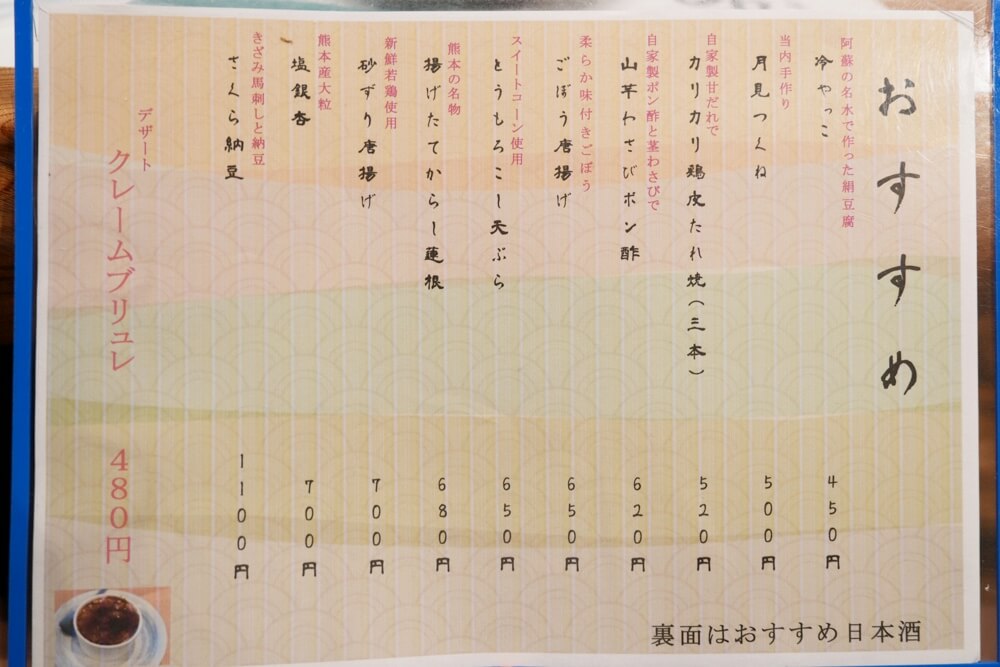 おすすめ
阿蘇の名水で作った絹豆腐
冷やっこ
450円
当内手作り
月見つくね
500円
自家製甘だれで
カリカリ鶏皮たれ焼(三本)
520円
自家製ポン酢と茎わさびで
山芋わさびポン酢
620円
柔らか味付きごぼう
ごぼう唐揚げ
650円
スイートコーン使用
とうもろこし天ぷら
650円
熊本の名物
揚げたてからし蓮根
680円
新鮮若鶏使用
砂ずり唐揚げ
700円
熊本産大粒
塩銀杏
700円
きざみ馬刺しと納豆
さくら納豆
1100円
デザート
クレームブリュレ
480円
裏面はおすすめ日本酒